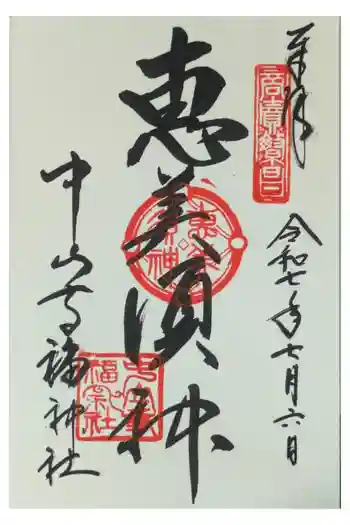 奉拝
商売繁昌
令和七年七月六日
恵美須神
中山寺福神社